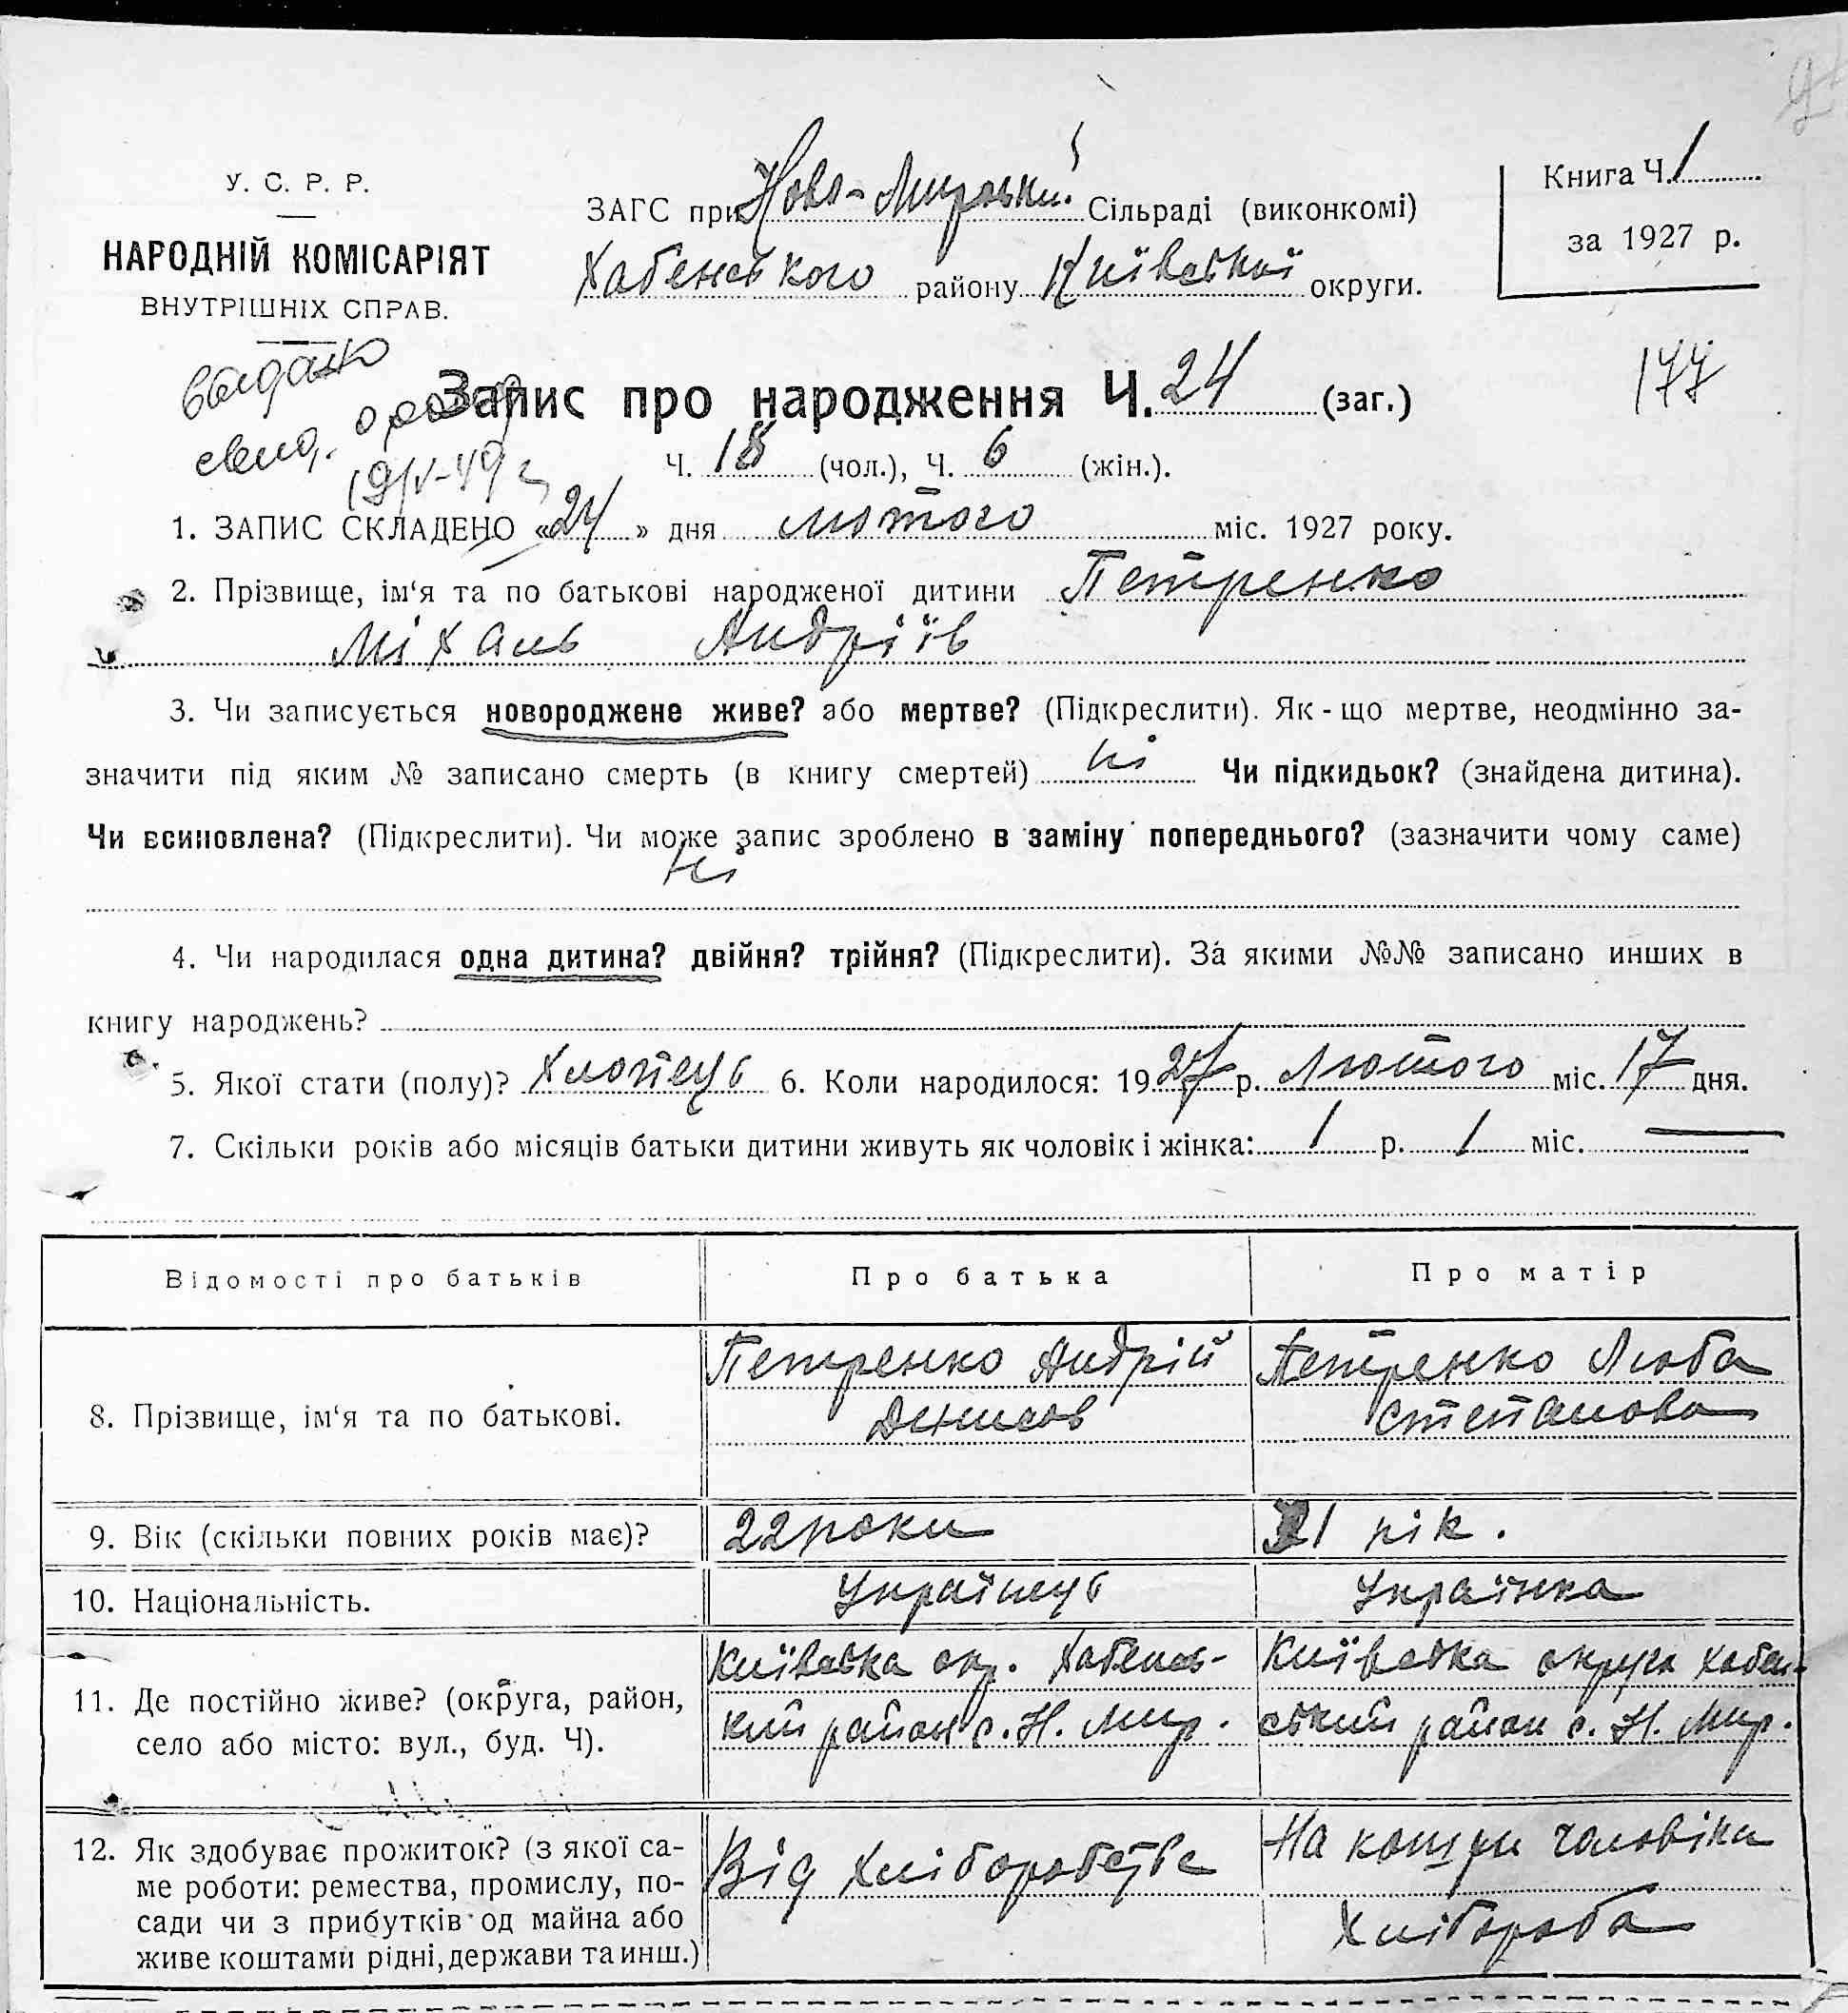 У. С. Р. Р.
НАРОДНІЙ КОМІСАРІЯТ
ВНУТРІШНІХ СПРАВ.
ЗАГС при Ново-Мирській Сільраді (виконкомі)
Хабенського району Київської округи.
Книга Ч. 1
за 1927 р.
177
видано
свид.
19/V-49 г
Запис про народження Ч. 24 (заг.)
Ч. 18 (чол.), Ч. 6 (жін.).
1. ЗАПИС СКЛАДЕНО «24» дня лютого міс. 1927 року.
2. Прізвище, ім'я та по батькові народженої дитини Петренко
Міхаль Андріїв
3. Чи записується новороджене живе? або мертве? (Підкреслити). Як-що мертве, неодмінно за-
значити під яким № записано смерть (в книгу смертей) ні Чи підкидьок? (знайдена дитина).
Чи всиновлена? (Підкреслити). Чи може запис зроблено в заміну попереднього? (зазначити чому саме)
Ні
4. Чи народилася одна дитина? двійня? трійня? (Підкреслити). За якими №№ записано инших в
книгу народжень?
5. Якої стати (полу)? Хлопець 6. Коли народилося: 1927 р. Лютого міс. 17 дня.
7. Скільки років або місяців батьки дитини живуть як чоловік і жінка: 1 р. 1 міс.
Відомості про батьків Про батька Про матір
8. Прізвище, ім'я та по батькові.
Петренко Андрій
Денисов
Петренко Люба
Степанова
9. Вік (скільки повних років має)? 22 роки 21 рік.
10. Національність. Українець Українка
11. Де постійно живе? (округа, район,
село або місто: вул., буд. Ч).
Київська окр. Хабенсь-
кий район с. Н. Мир.
Київська округа Хабен-
ський район с. Н. Мир.
12. Як здобуває прожиток? (з якої са-
ме роботи: ремества, промислу, по-
сади чи з прибутків од майна або
живе коштами рідні, держави та инш.)
Від хліборобства
На кошти чоловіка
Хлібороба